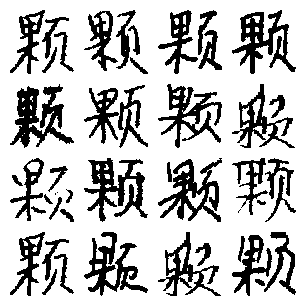 颗颗颗颗
颗颗颗颗
颗颗颗颗
颗颗颗颗